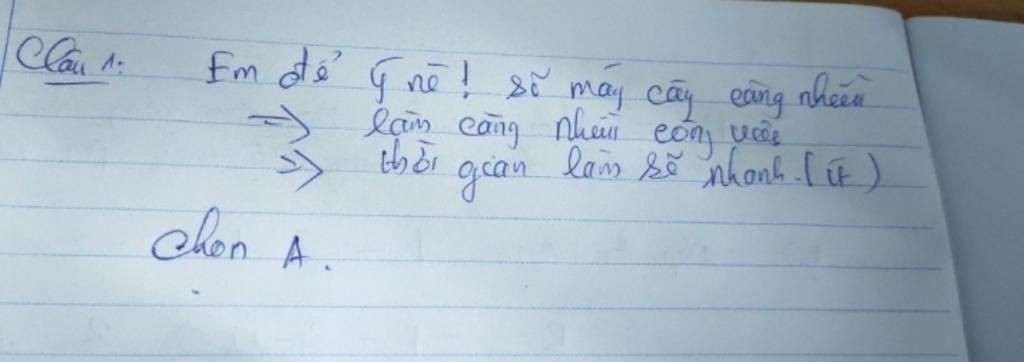 Câu 1: Em để ý nè! số máy cày càng nhiều
=> làm càng nhiều công việc
=> thời gian làm sẽ nhanh. (ít)
Chọn A.